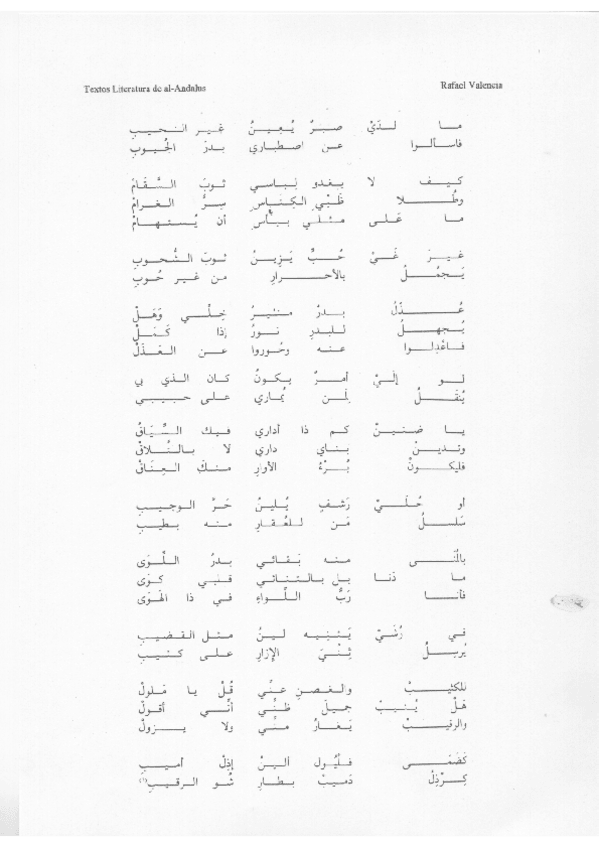 Textos Literatura de al-Andalus
Rafael Valencia
ما لديْ صبرٌ يُعينُ غير النحيبِ
فاسألوا عن اصطباري بدرَ الجُيوبِ
كيف لا يغدو لباسي ثوبَ السَّقامْ
وطُلا ظَبْيِ الكِناسِ سِرُّ الغرامْ
ما عَلى مثلي ببأسٍ أن يُستهامْ
غيرَ غَيْ حُبٍّ يَزينُ ثوبَ الشُّحوبِ
يَجمُلُ بالأحرارِ من غير حُوبِ
عُذّلُ بدرٌ منيرُ خِلّي وَهَلْ
يُجهلُ للبدرِ نورُ إذا كَمَلْ
فاعْدِلوا عنه وحُوروا عن العَذَلْ
لو إلَيْ أمرٌ يكونُ كان الذي بي
يُنقلُ لمن يُماري على حبيبي
يا ضنينْ كم ذا أداري فيك السِّيَاقْ
وتدينْ بناي داري لا بالتُّلاقْ
فليكونْ بُرْءُ الأوارِ منكَ العِناقْ
أو حُلَيْ رَشفٍ يُلينُ حَرَّ الوجيبِ
سَلسلُ مَن للعُقارِ منه بطيبِ
بالمُنَى منه بَقائي بدرُ اللِّوَى
ما دَنا بل بالتنائي قلبي كَوَى
فأنا رَبُّ اللِّواءِ في ذا الهَوَى
في رُشَيْ يَثنيه لينُ مثل القضيبِ
يُرسلُ ثِنْيَ الإزارِ على كثيبِ
للكثيبْ والغصنِ عنّي قُلْ يا مَلولْ
هَلْ يُثيبْ جميلَ ظنّي أنّي أقولْ
والرقيبْ يَغارُ منّي ولا يزولْ
كَضَمَى فلْيُول ألينْ إذْل أميبِ
كِرْذِلْ دَميبْ بطارِ شُو الرقيبِ